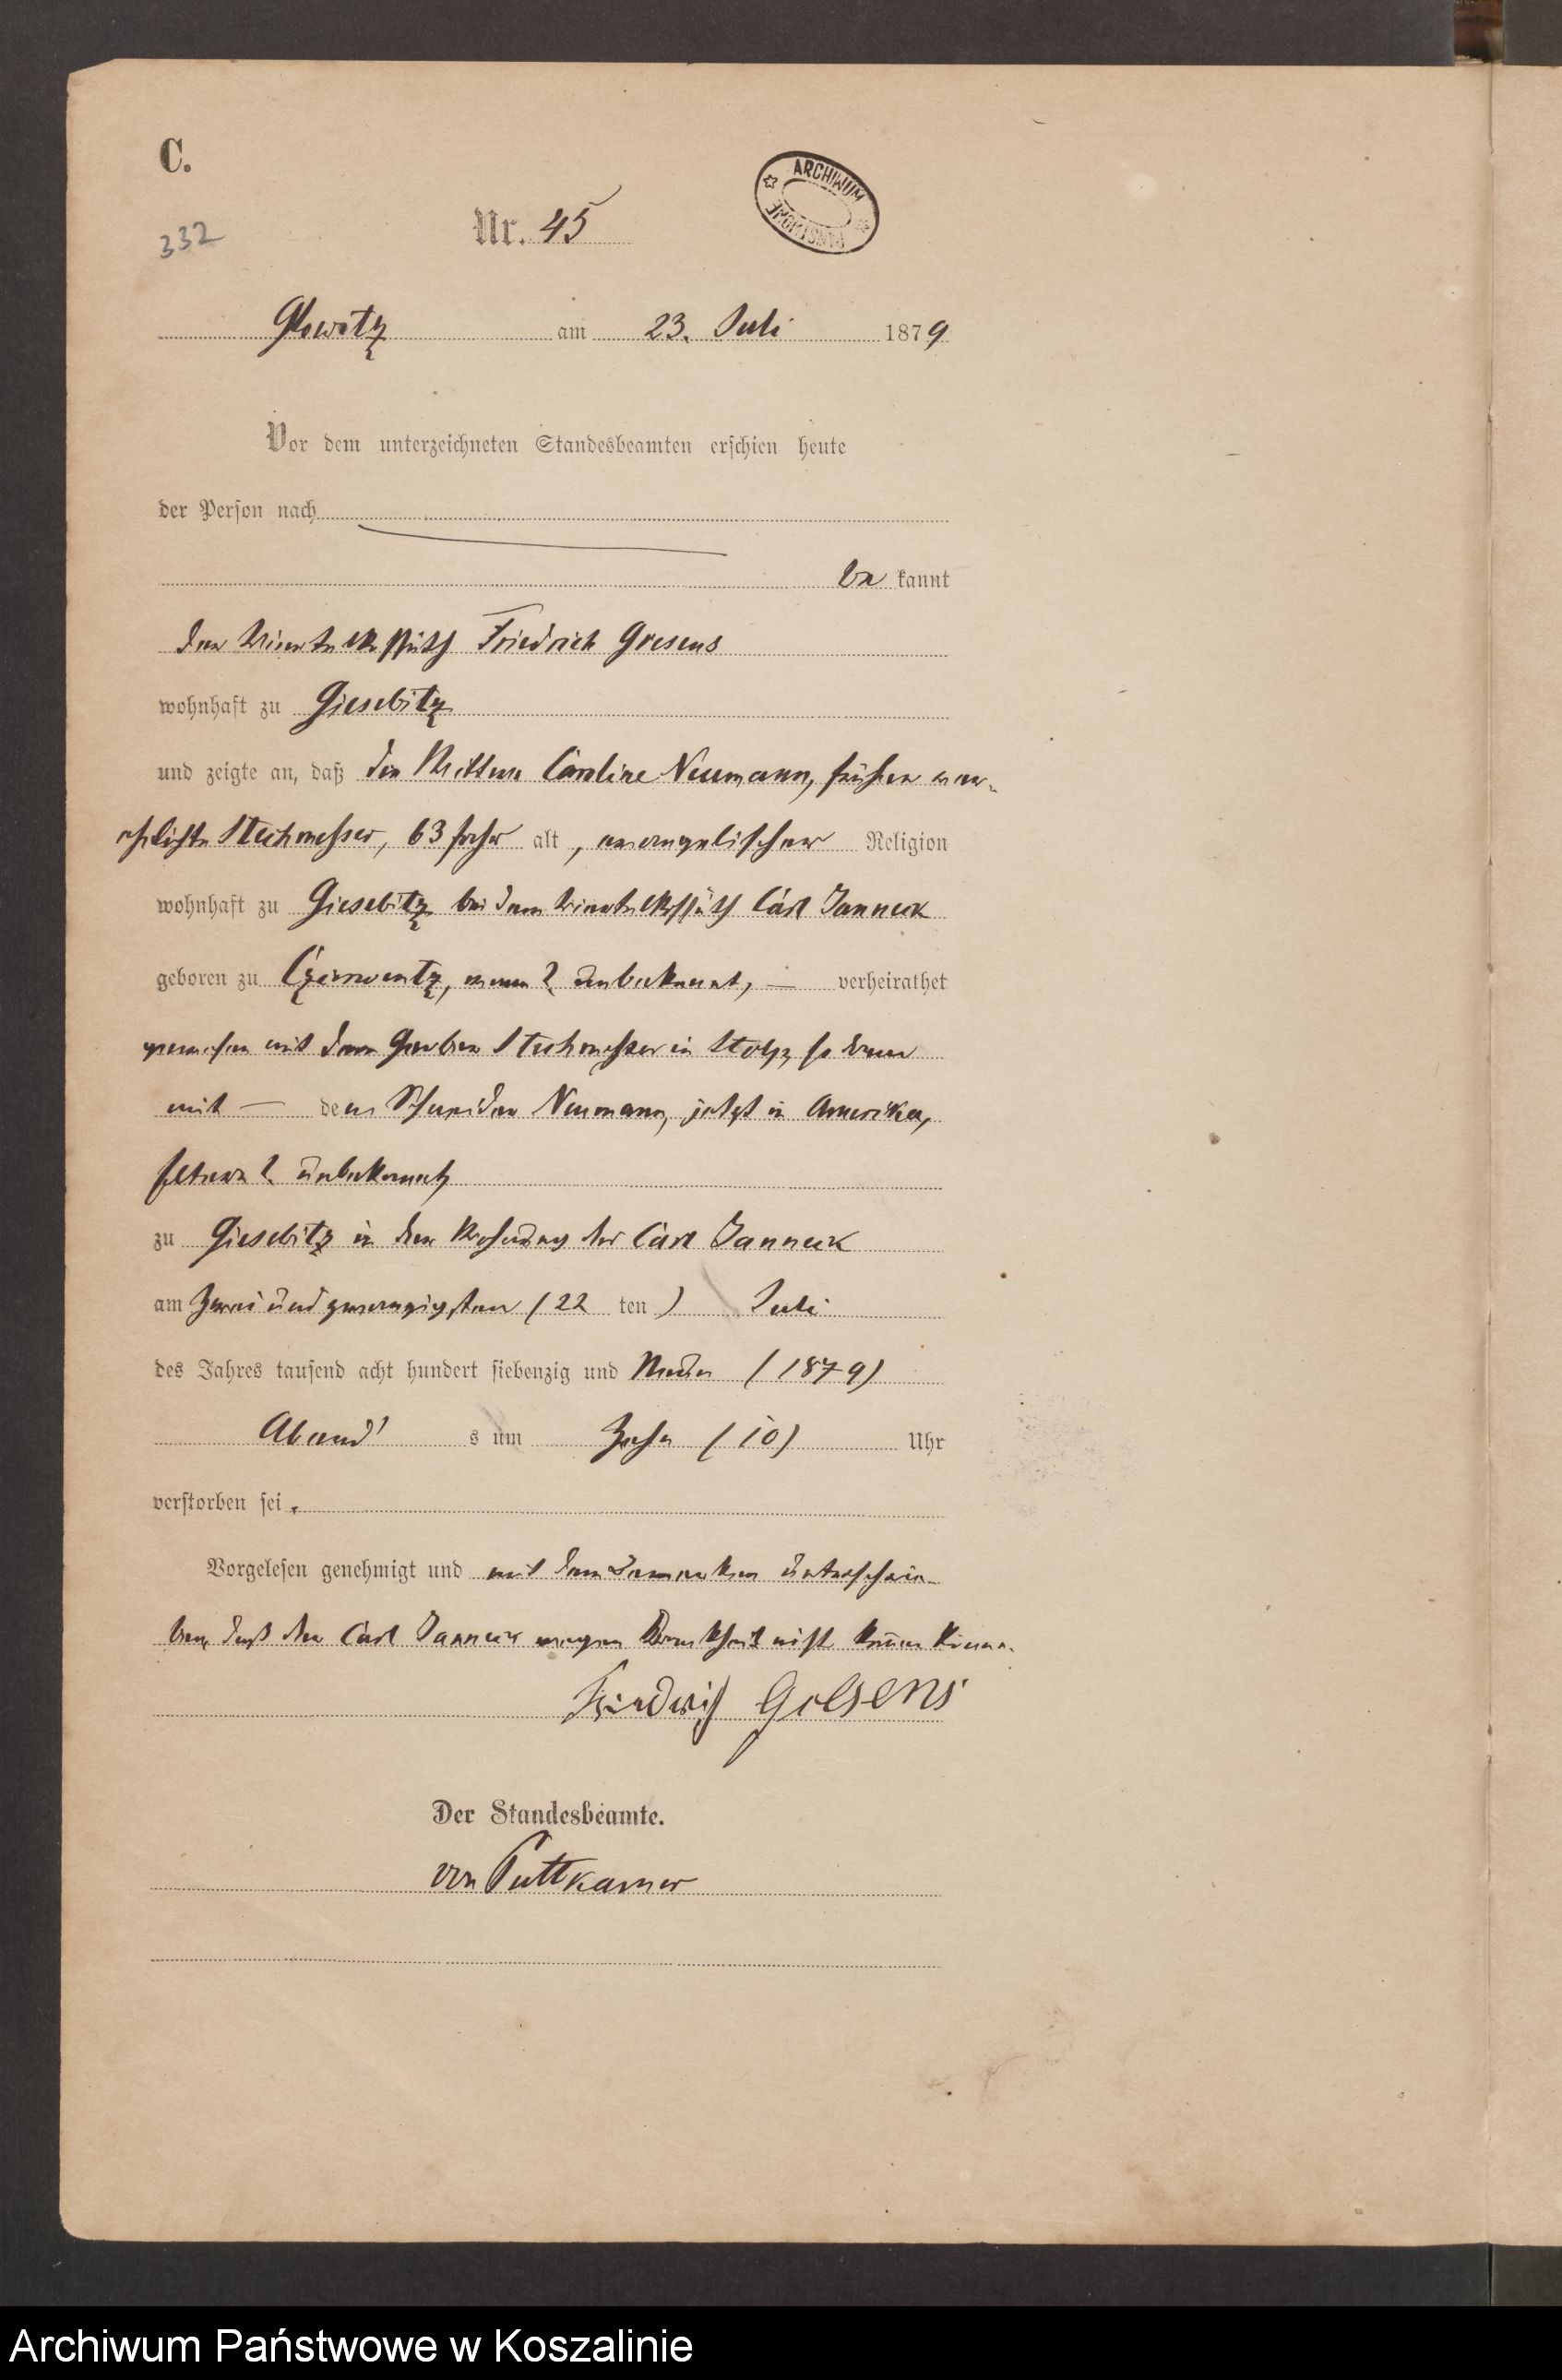 C.
332
Nr. 45
ARCHIWUM PAŃSTWOWE
Glowitz am 23. Juli 1879
Vor dem unterzeichneten Standesbeamten erschien heute
der Person nach
be kannt
der Friedrich Gresens
wohnhaft zu Giesebitz
und zeigte an, daß die Caroline Neumann, früher ver-
ehlichte Stechmesser, 63 Jahr alt, evangelischer Religion
wohnhaft zu Giesebitz bei dem Carl Janneck
geboren zu Czierwentz, wenn? unbekannt, — verheirathet
gewesen mit dem Gerber Stechmesser in Stolp, so dann
mit — dem Schneider Neumann, jetzt in Amerika,
Eltern? unbekannt
zu Giesebitz in der Behausung des Carl Janneck
am zwei und zwanzigsten (22 ten) Juli
des Jahres tausend acht hundert siebenzig und Neun (1879)
Abend s um Zehn (10) Uhr
verstorben sei.
Vorgelesen genehmigt und mit dem Bemerken unterschrie-
ben, daß der Carl Janneck wegen Krankheit nicht kommen könne.
Friedrich Gresens
Der Standesbeamte.
von Puttkamer
Archiwum Państwowe w Koszalinie